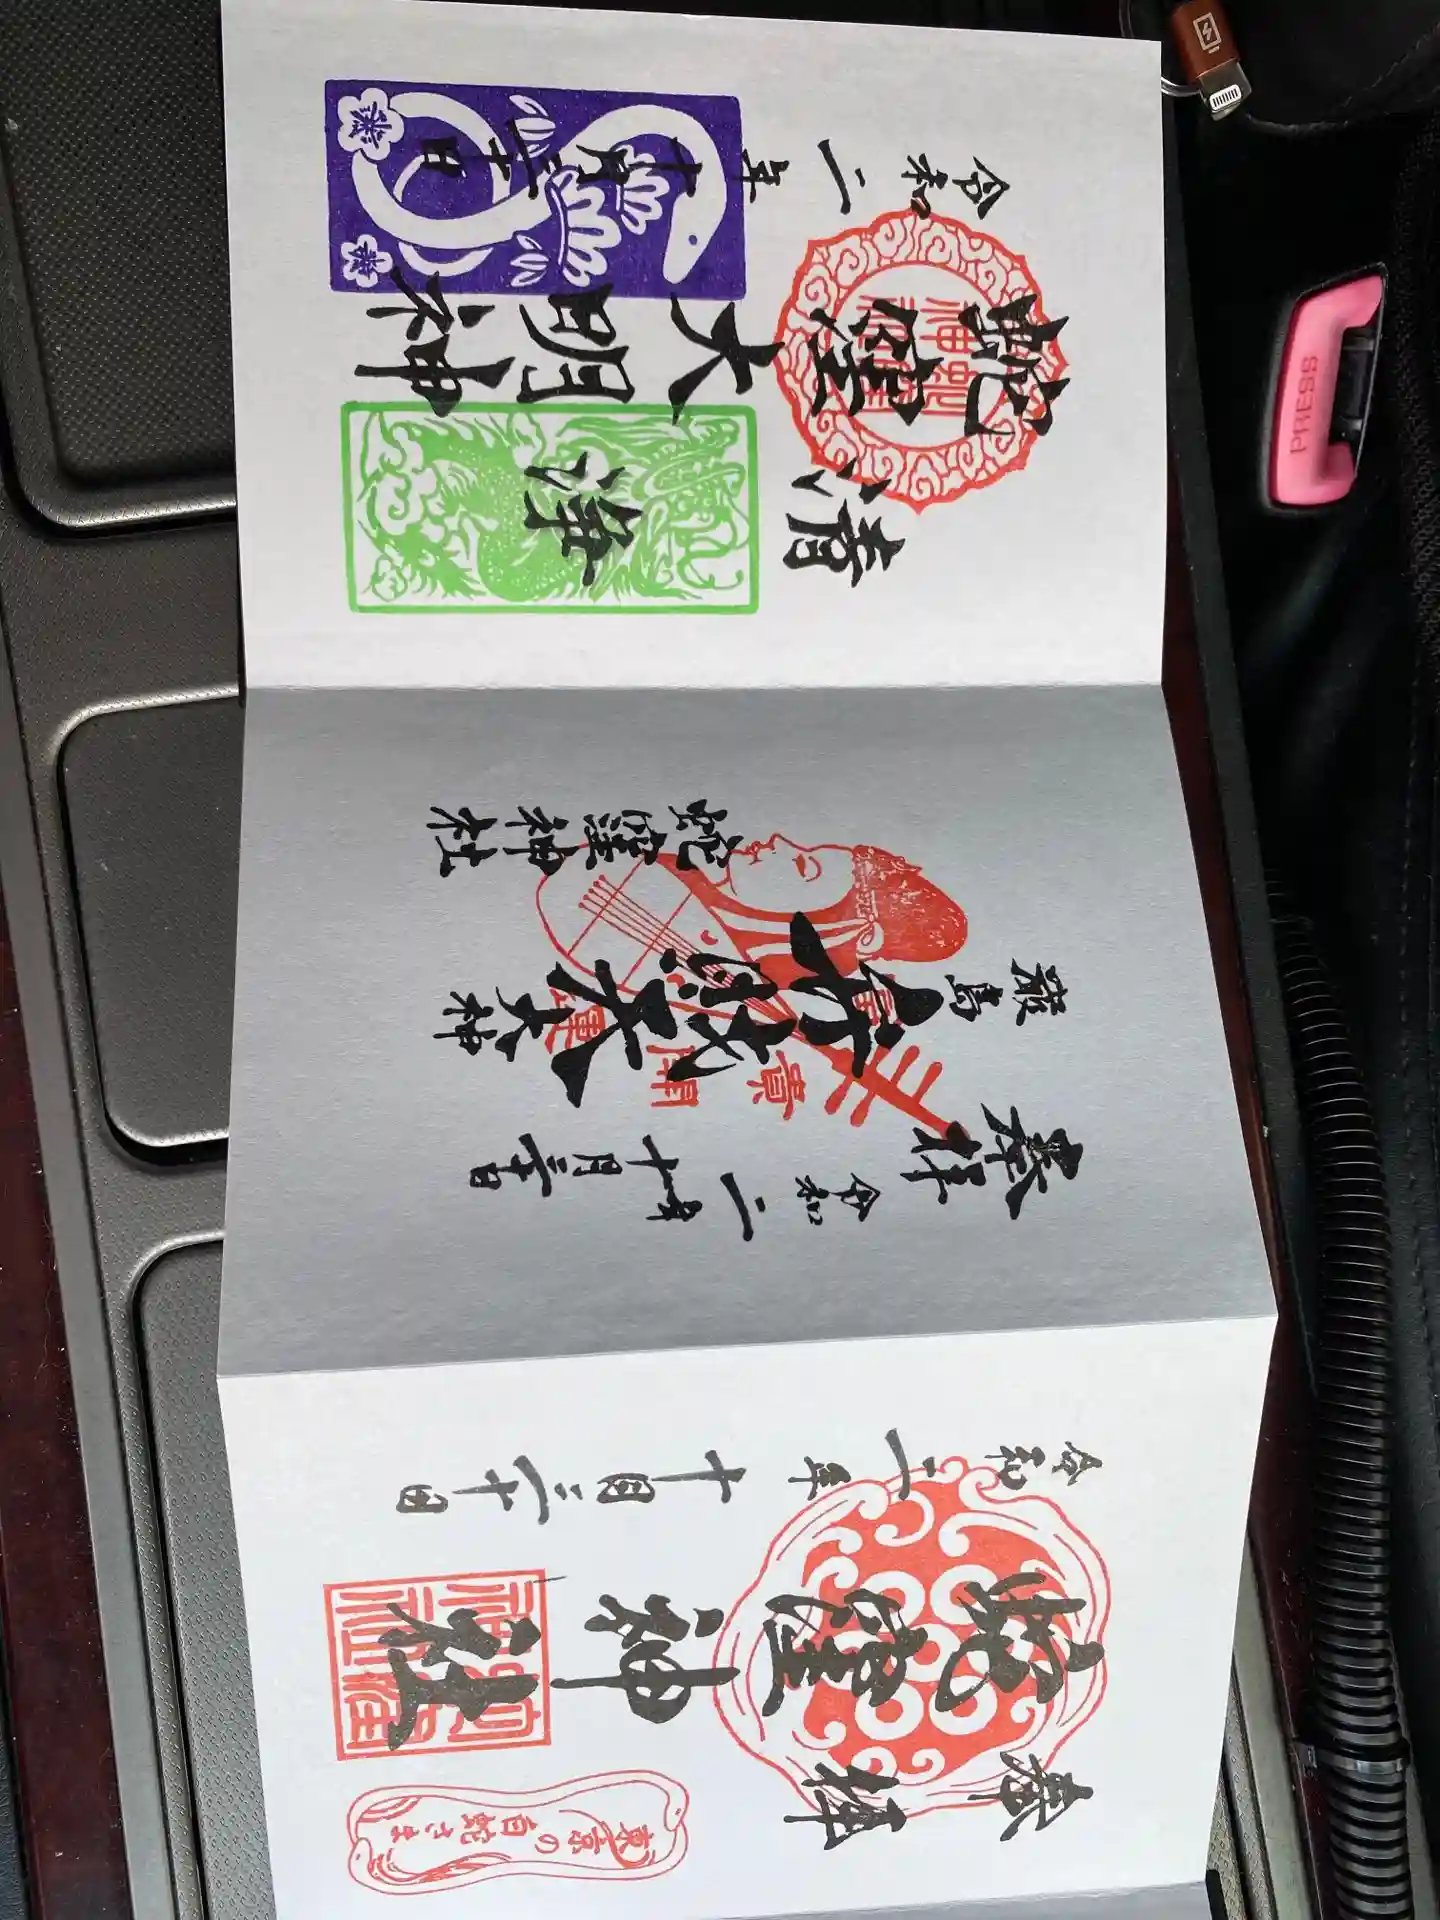 奉拝
東京の白蛇さま
蛇窪神社
令和二年十月三十日
奉拝
令和二年十月三十日
厳島
弁財天
大神
富貴開運
蛇窪神社
清浄
蛇窪大明神
令和二年十月三十日
PRESS